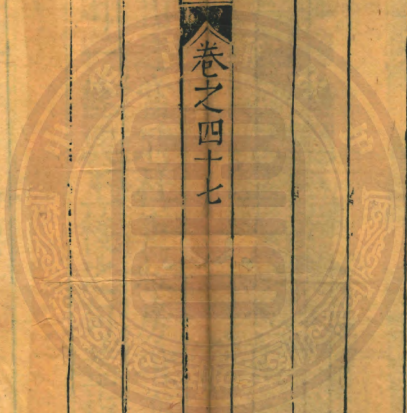 卷之四十七